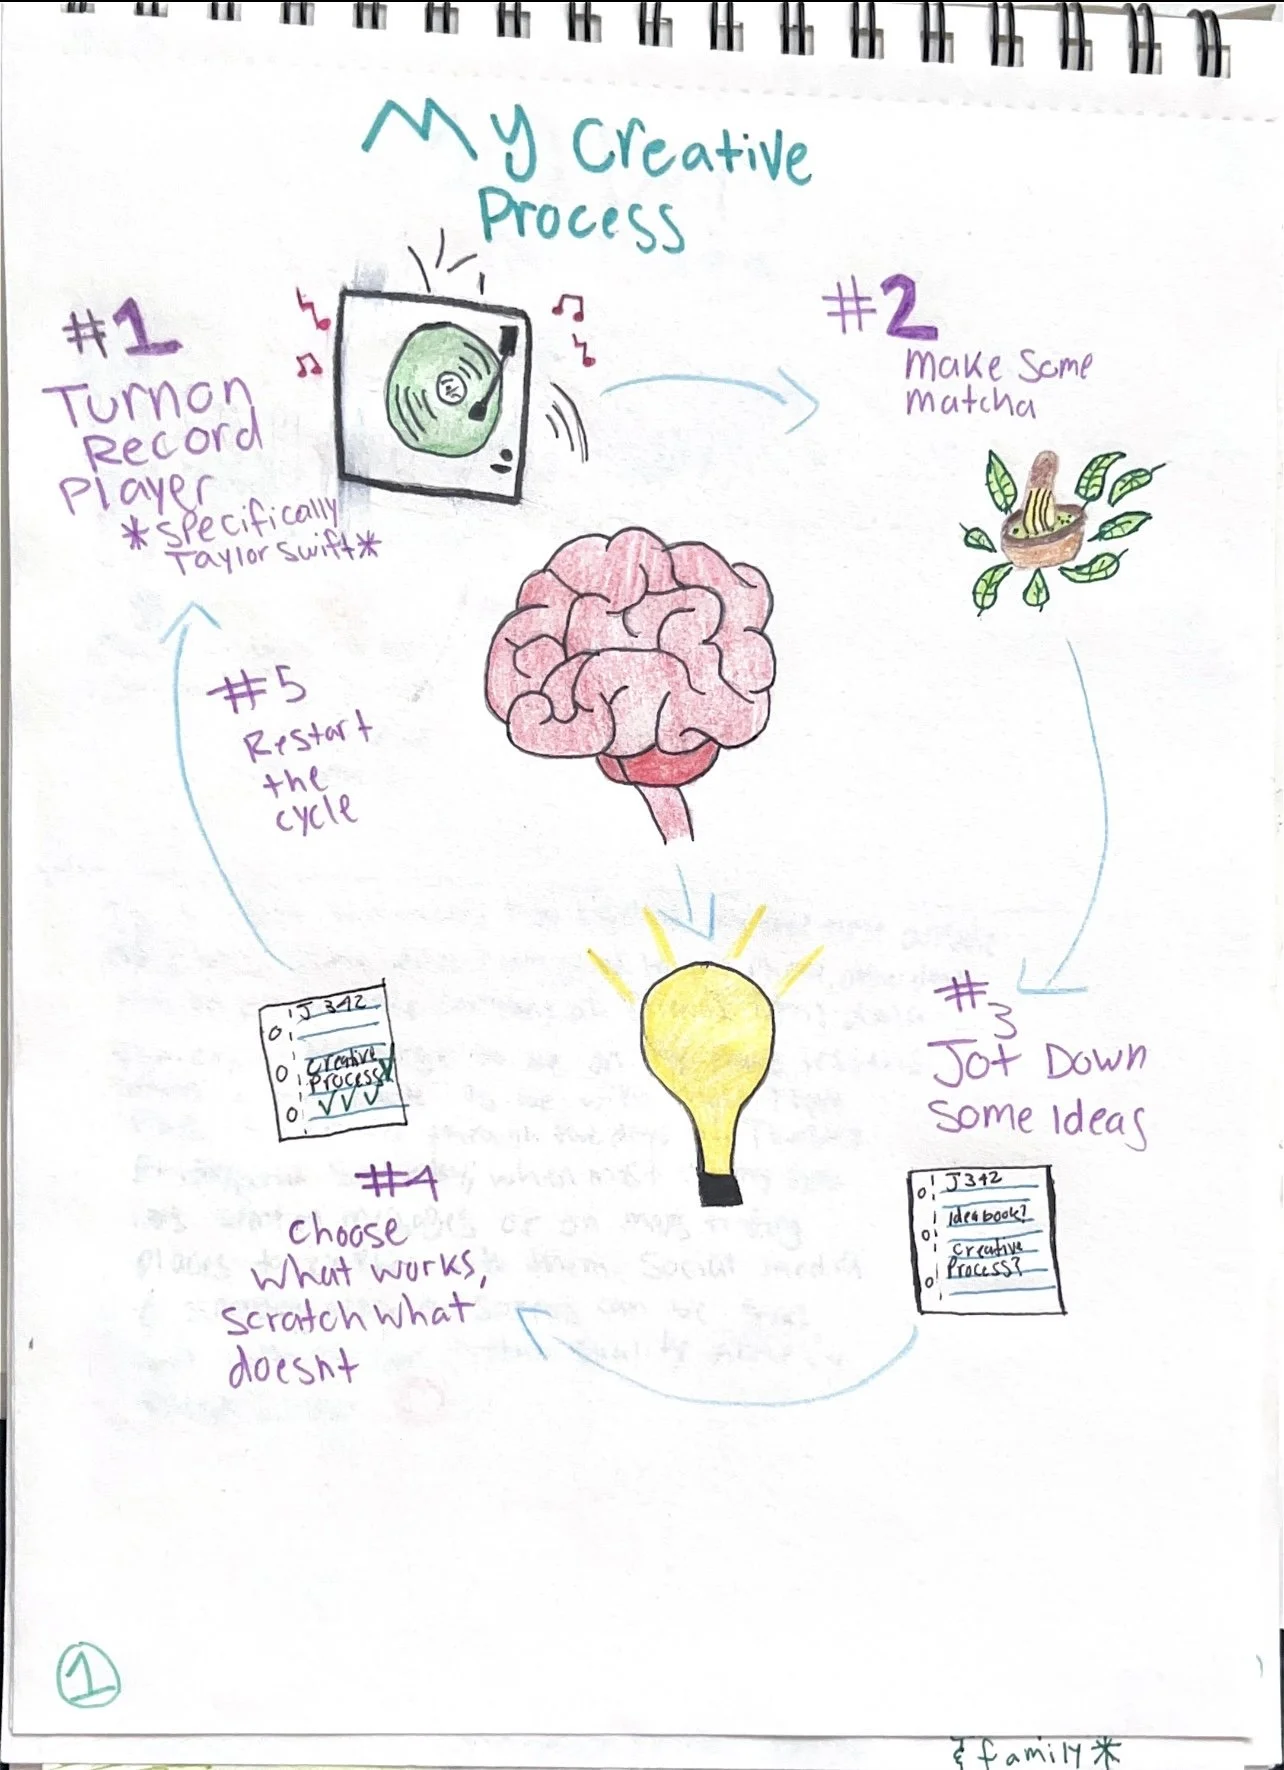 My Creative
Process
#1
Turn on
Record
Player
*specifically
Taylor Swift*
#2
Make Some
Matcha
#3
Jot Down
Some Ideas
J342
Idea book?
Creative
Process?
#4
Choose
What works,
Scratch what
doesnt
J342
Creative
Process
#5
Restart
the
cycle
1
& family*